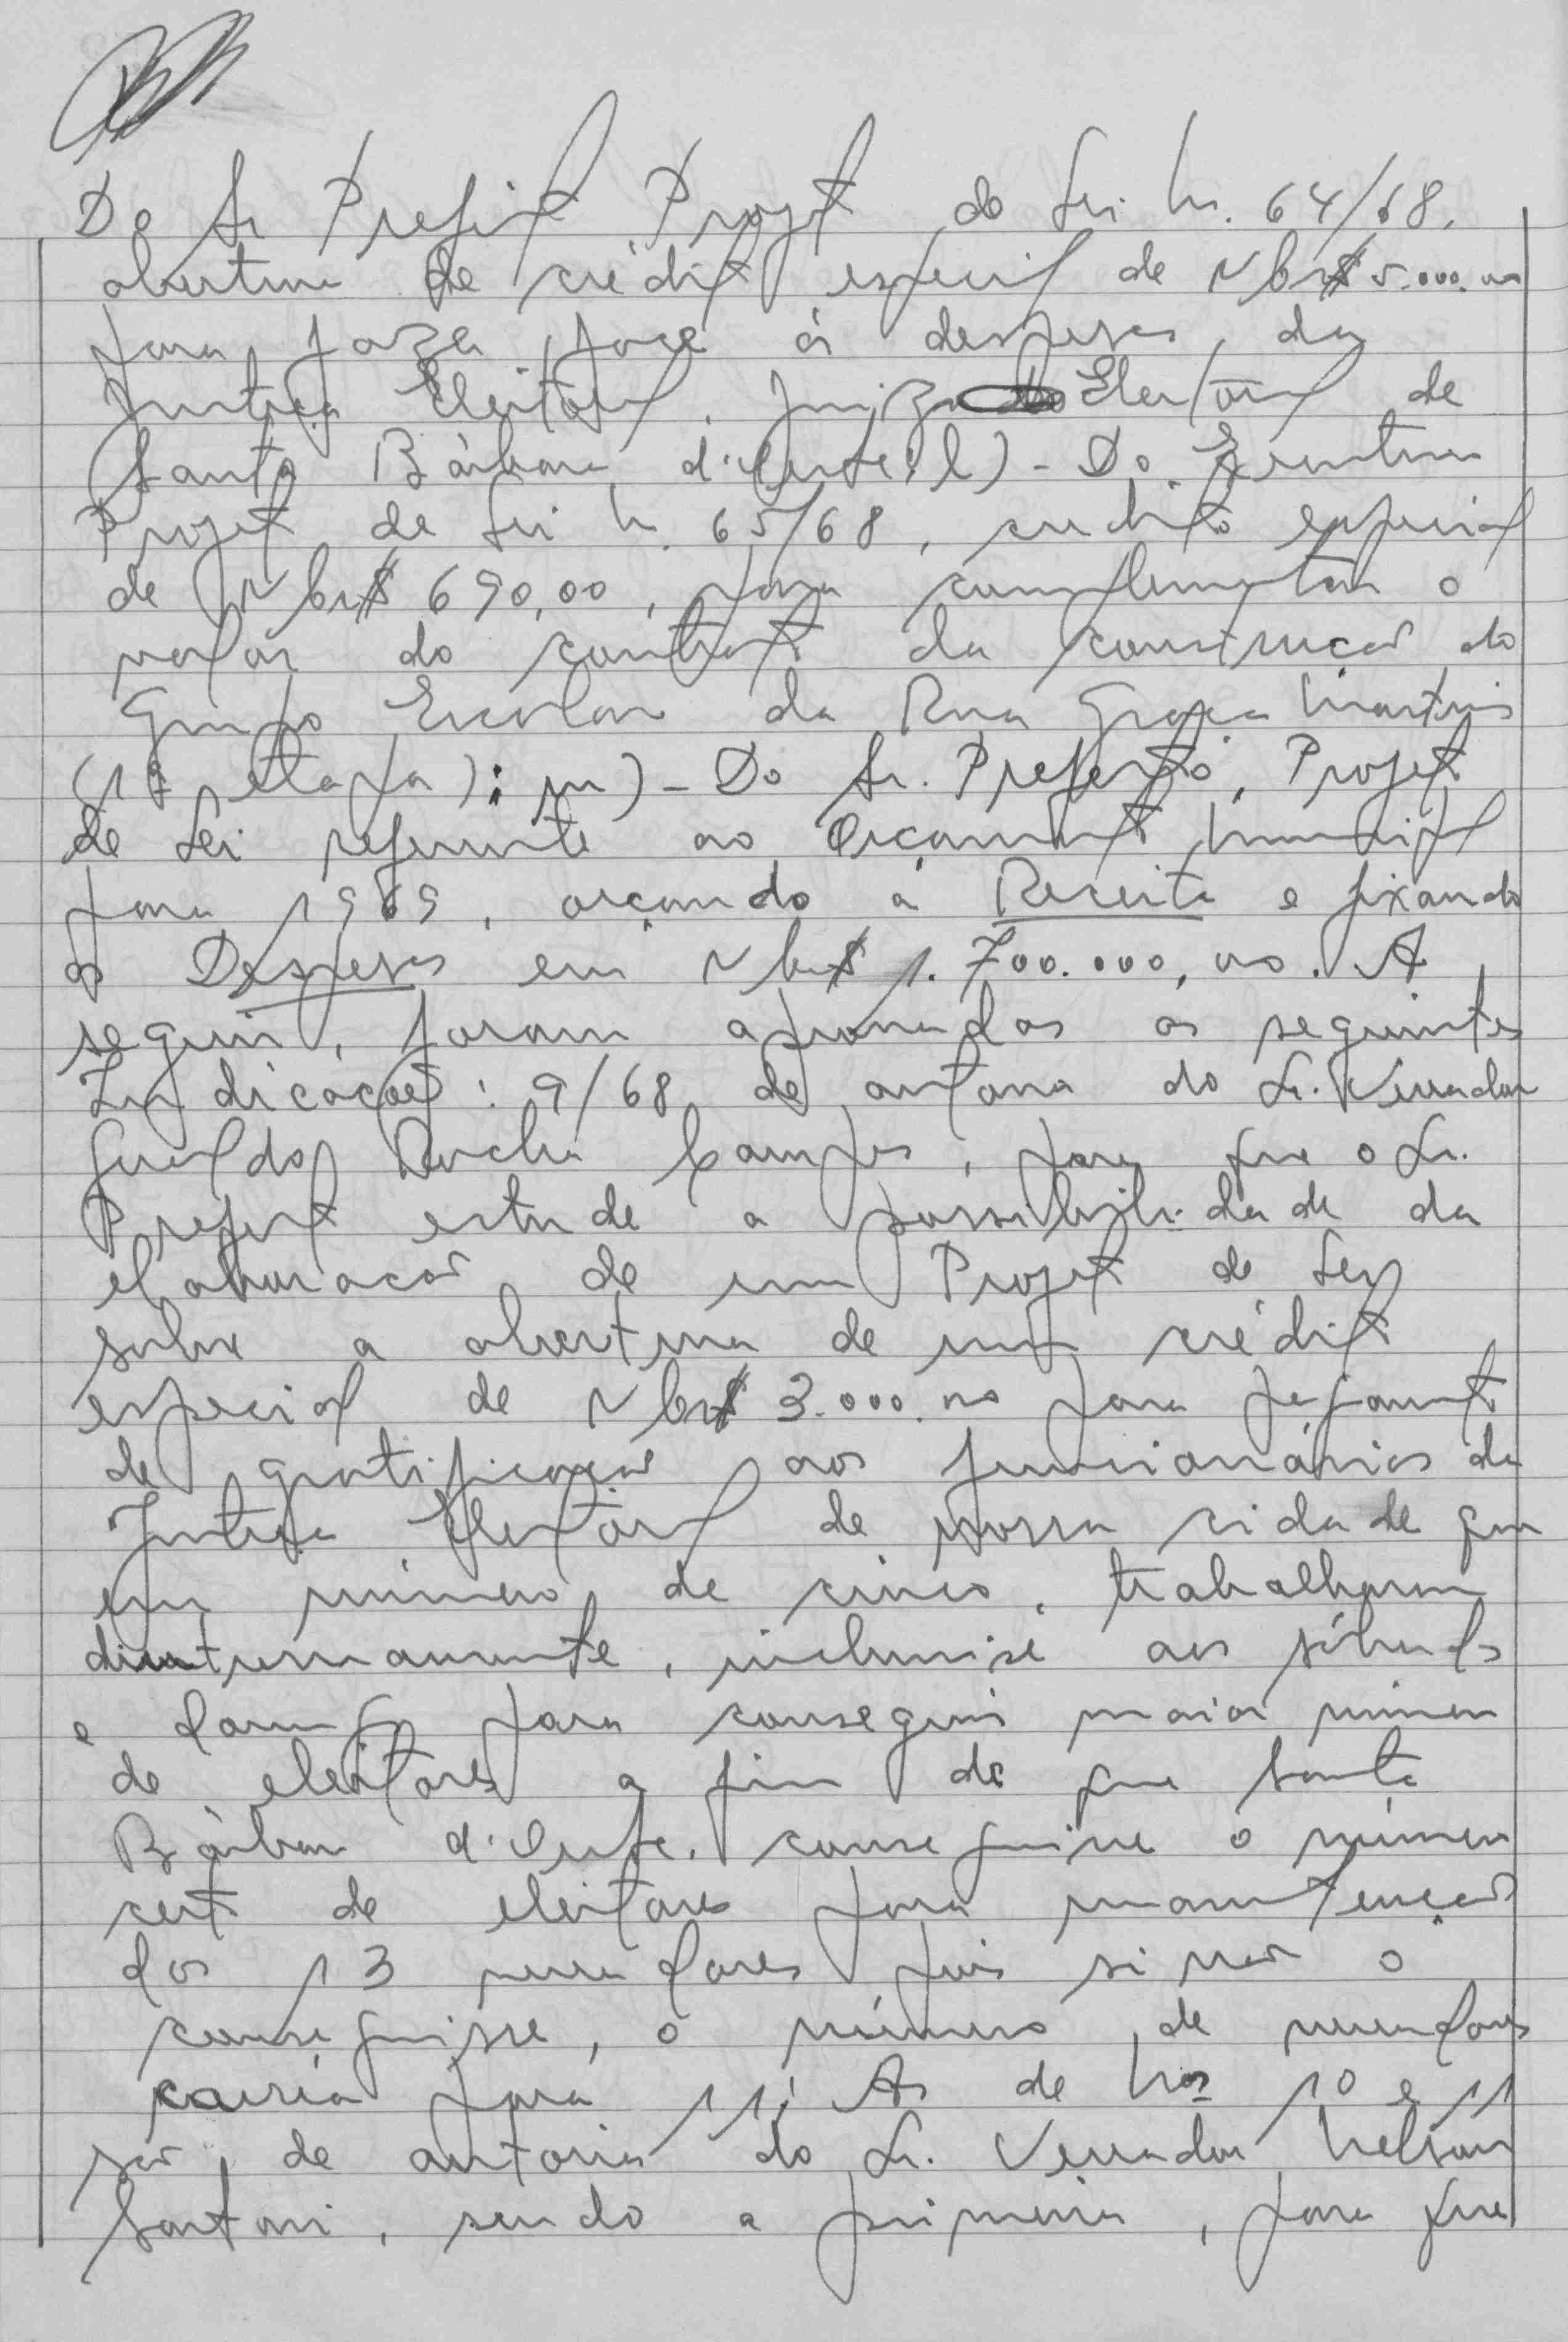 Do Sr Prefeito Projeto de Lei nr. 64/68,
abertura de crédito especial de NCr$ 5.000.00
para fazer face ás despesas da
Justiça Eleitoral, Juizado Eleitoral de
Santa Bárbara d'Oeste; l) - Do Executivo
Projeto de Lei nr. 65/68, credito especial
de NCr$ 690,00, para complementar o
valor do contrato da construção do
Grupo Escolar da Rua Graça Martins
(1ª etapa); m) - Do Sr. Prefeito, Projeto
de Lei referente ao Orçamento Municipal
para 1969, orçando a Receita e fixando
as Despesas em NCr$ 1.700.000,00. A
seguir, foram aprovadas as seguintes
Indicações: 9/68 de autoria do Sr. Vereador
Geraldo Rocha Campos, para que o Sr.
Prefeito estude a possibilidade da
elaboração de um Projeto de Ley
sobre a abertura de um crédito
especial de NCr$ 3.000.00 para pagamento
de gratificação aos funcionários da
Justiça Eleitoral de nossa cidade que
em número de cinco, trabalharam
diuturnamente, inclusive aos sábados
e domingos para conseguir maior número
de eleitores a fim de que Santa
Bárbara d'Oeste, conseguisse o número
certo de eleitores para manutenção
dos 13 vereadores pois si não o
conseguisse, o número de vereadores
cairia para 11; As de nos 10 e 11
são de autoria do Sr. Vereador Nelson
Sartori, sendo a primeira, para que